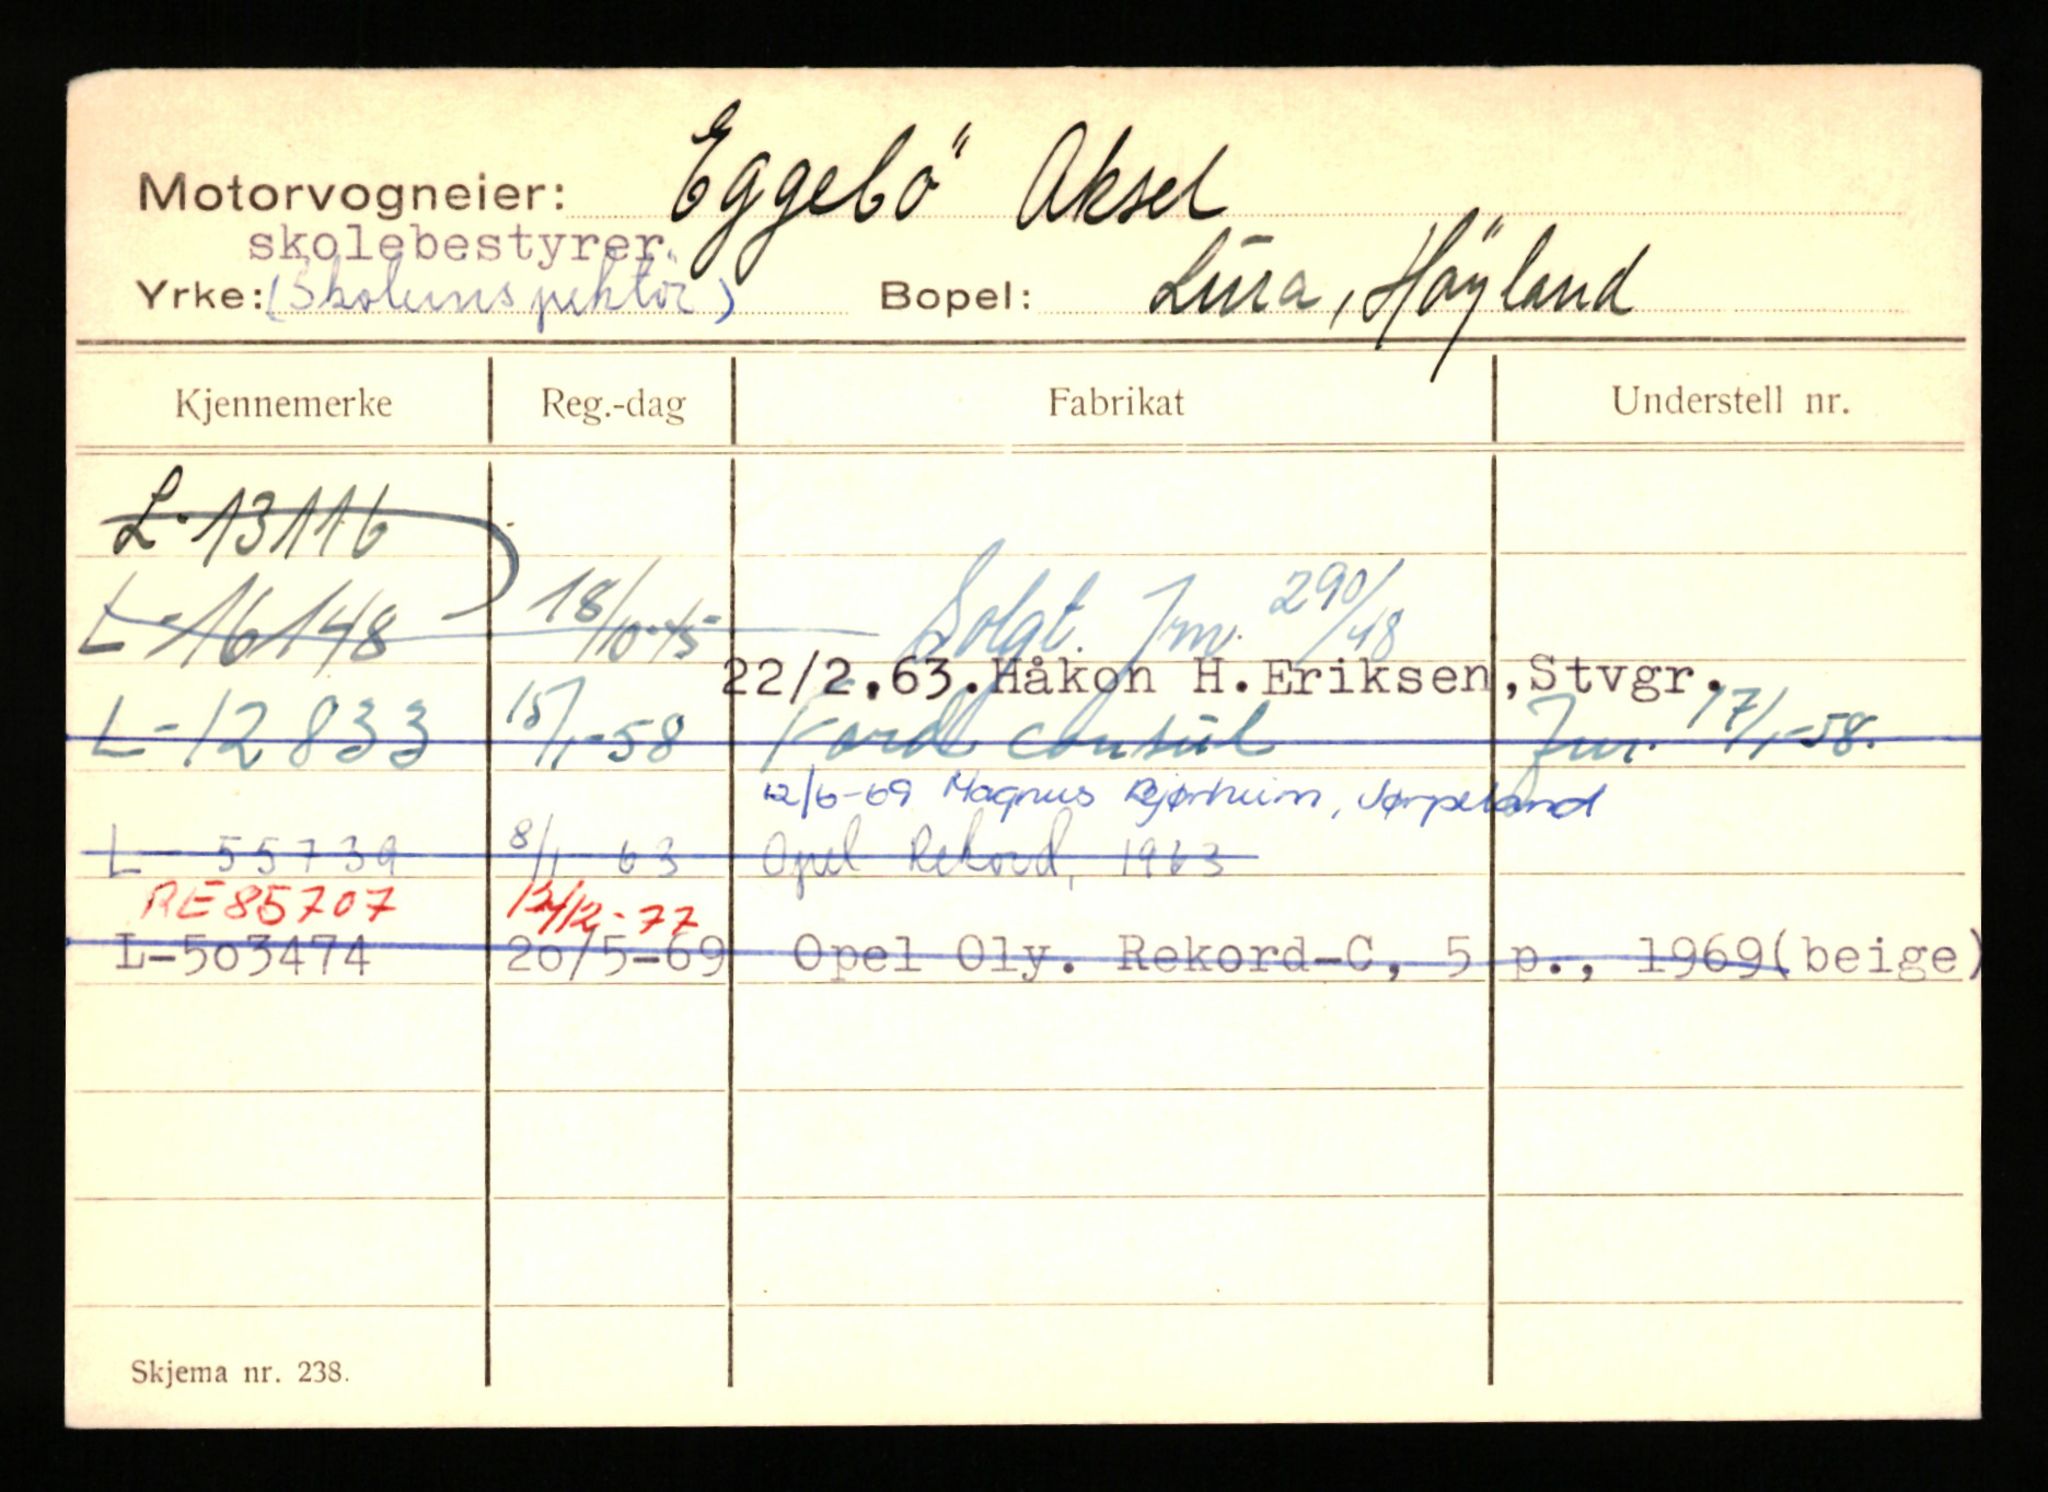 Motorvogneier: Eggebö Aksel
skolebestyrer.
Yrke: (Skoleinspektör) Bopel: Lura, Höyland
Kjennemerke Reg.-dag Fabrikat Understell nr.
L-13116
L-16148 18/10-45 Solgt. Jrn. 290/48
22/2.63.Håkon H.Eriksen,Stvgr.
L-12833 15/1-58 Ford Consul Jnr. 17/1-58.
12/6-69 Magnus Bjørheim, Jørpeland
L-55739 8/1 63 Opel Rekord, 1963
RE85707 12/12-77
L-503474 20/5-69 Opel Oly. Rekord-C, 5 p., 1969(beige)
Skjema nr. 238.